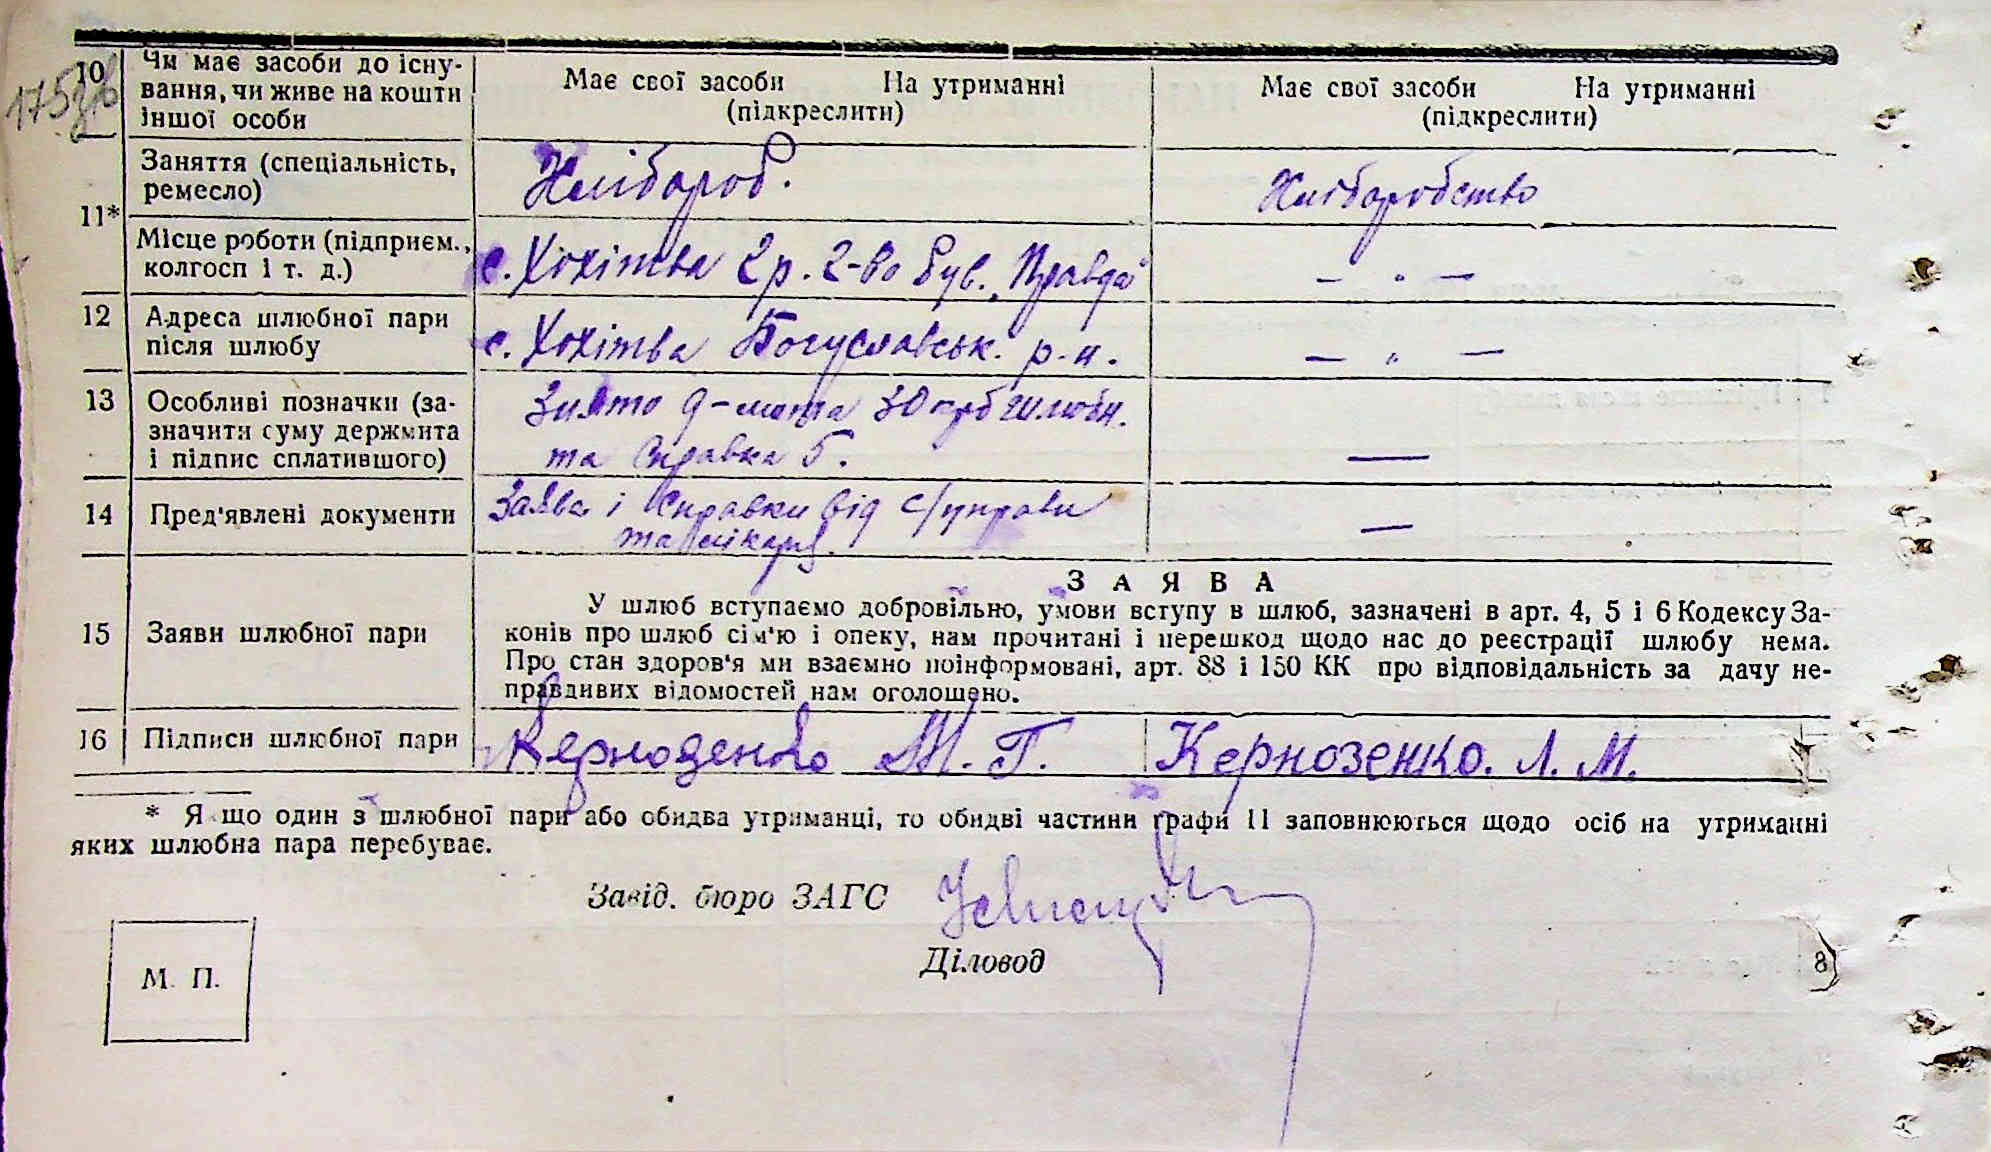 175 зв
10 Чи має засоби до існу-
вання, чи живе на кошти
іншої особи
Має свої засоби На утриманні
(підкреслити)
Має свої засоби На утриманні
(підкреслити)
11* Заняття (спеціальність,
ремесло)
Хлібороб.
Хліборобство
Місце роботи (підприєм.,
колгосп і т. д.)
с. Хохітва 2 р. 2-во був. „Правда"
— " —
12 Адреса шлюбної пари
після шлюбу
с. Хохітва Богуславськ. р-н.
— " —
13 Особливі позначки (за-
значити суму держмита
і підпис сплатившого)
Знято д-мита 30 крб шлюбн.
та Справка 5.
—
14 Пред'явлені документи
Заява і Справки від с/управи
та лікаря
—
15 Заяви шлюбної пари
ЗАЯВА
У шлюб вступаємо добровільно, умови вступу в шлюб, зазначені в арт. 4, 5 і 6 Кодексу За-
конів про шлюб сім'ю і опеку, нам прочитані і перешкод щодо нас до реєстрації шлюбу нема.
Про стан здоров'я ми взаємно поінформовані, арт. 88 і 150 КК про відповідальність за дачу не-
правдивих відомостей нам оголошено.
16 Підписи шлюбної пари
Керноденко М. Г.
Кернозенко. Л. М.
* Я що один з шлюбної пари або обидва утриманці, то обидві частини графи 11 заповнюються щодо осіб на утриманні
яких шлюбна пара перебуває.
Завід. бюро ЗАГС
Діловод
М. П.
8)